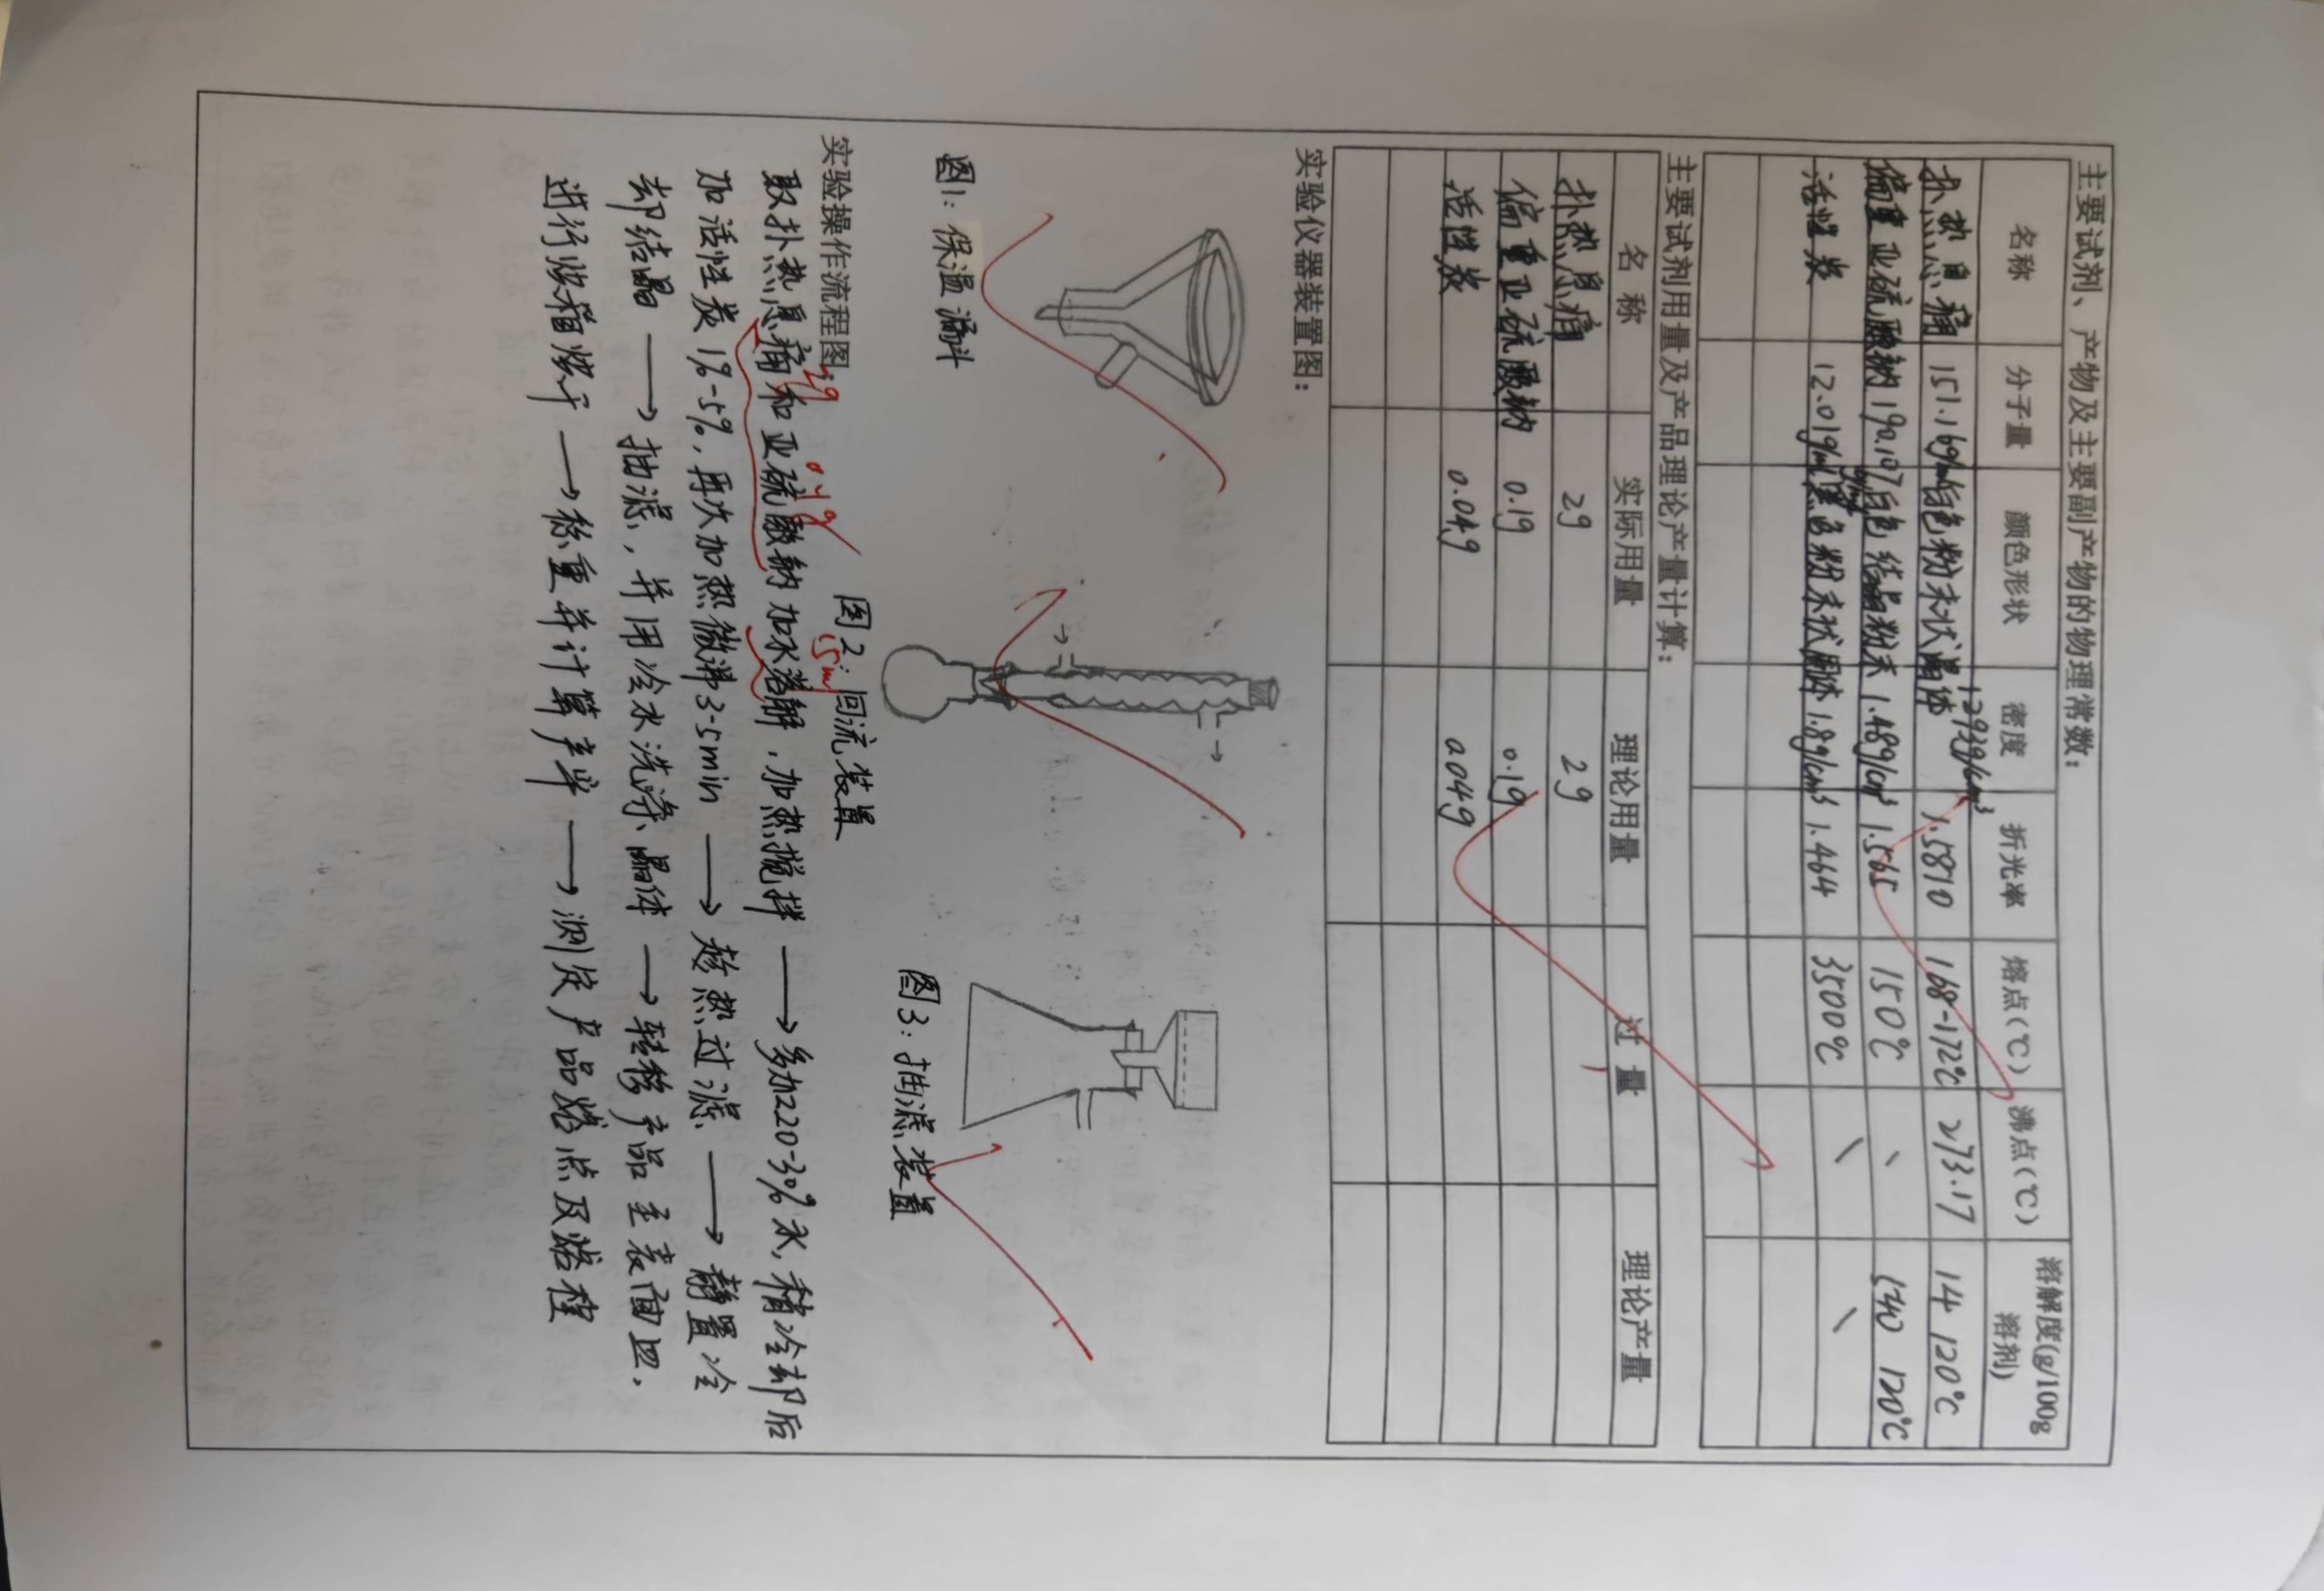 主要试剂、产物及主要副产物的物理常数：
名称 分子量 颜色形状 密度 折光率 熔点(℃) 沸点(℃) 溶解度(g/100g溶剂)
扑热息痛 151.16g/mol 白色粉末状晶体 1.293g/cm³ 1.5810 168-172℃ 273.17 14 120℃
偏重亚硫酸钠 190.107 白色结晶粉末 1.48g/cm³ 1.565 150℃ 、 540 120℃
活性炭 12.01g/mol 黑色粉末状固体 1.8g/cm³ 1.464 3500℃ \ \
主要试剂用量及产品理论产量计算：
名称 实际用量 理论用量 过量 理论产量
扑热息痛 2g 2g
偏重亚硫酸钠 0.1g 0.1g
活性炭 0.04g 0.04g
实验仪器装置图：
图1：保温漏斗
图2：回流装置
图3：抽滤装置
实验操作流程图：
2g 0.1g 15ml
取扑热息痛和亚硫酸钠加水溶解，加热搅拌 → 多加20-30%水，稍冷却后
加活性炭1%-5%，再次加热微沸3-5min → 趁热过滤 → 静置冷
却结晶 → 抽滤，并用冷水洗净晶体 → 转移产品至表面皿，
进行烘箱烘干 → 称重并计算产率 → 测定产品熔点及熔程